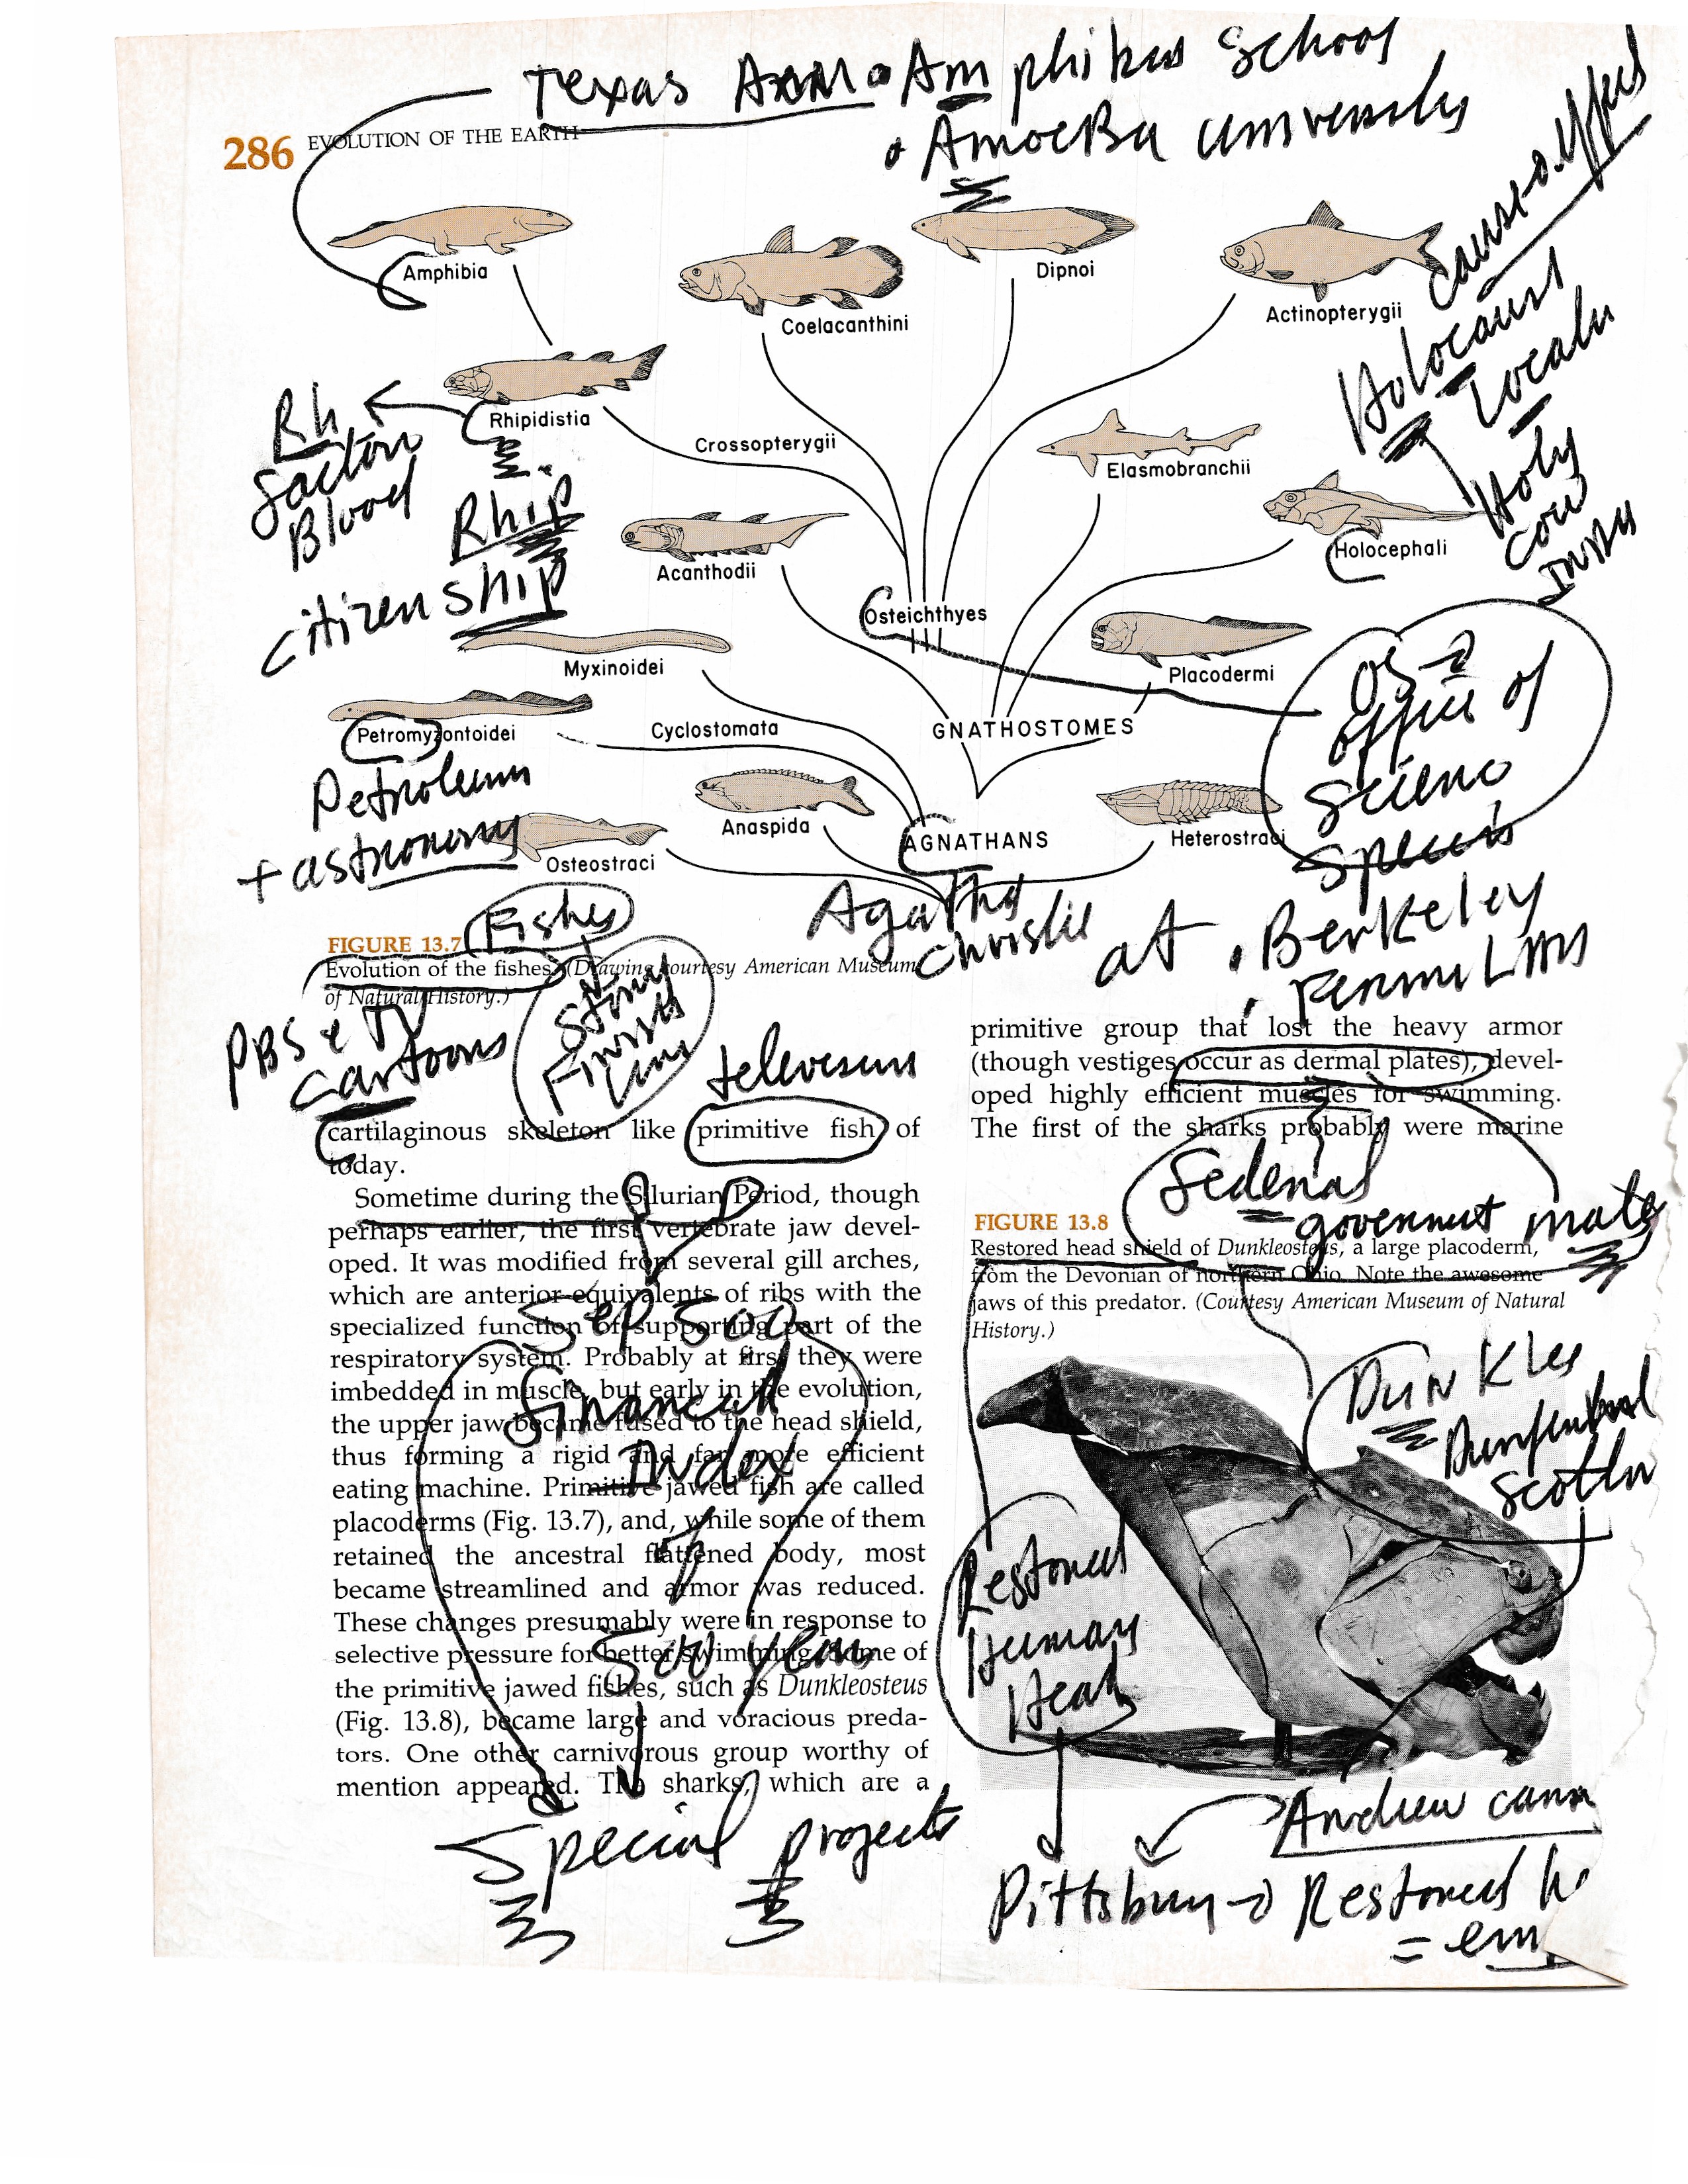 Texas A&M • Amphibus School
286 EVOLUTION OF THE EARTH
• AmoeBa
Cause
Amphibia
Coelacanthini
Dipnoi
Actinopterygii
Holocaust
Rhipidistia
Crossopterygii
Elasmobranchii
Holy
Cow
Rh
Factor
Blood
Rhip
citizenship
Acanthodii
Holocephali
Osteichthyes
Myxinoidei
Placodermi
Petromyzontoidei
Cyclostomata
GNATHOSTOMES
OS
office of
Science
Petroleum
+ astronomy
Anaspida
AGNATHANS
Heterostraci
Osteostraci
Agatha
Christie
at • Berkeley
Fishes
FIGURE 13.7
Evolution of the fishes. (Drawing courtesy American Museum
of Natural History.)
PBS & TV
cartoons
cartilaginous skeleton like primitive fish of
today.
Sometime during the Silurian Period, though
perhaps earlier, the first vertebrate jaw devel-
oped. It was modified from several gill arches,
which are anterior equivalents of ribs with the
specialized function of supporting part of the
respiratory system. Probably at first they were
imbedded in muscle, but early in the evolution,
the upper jaw became fused to the head shield,
thus forming a rigid and far more efficient
eating machine. Primitive jawed fish are called
placoderms (Fig. 13.7), and, while some of them
retained the ancestral flattened body, most
became streamlined and armor was reduced.
These changes presumably were in response to
selective pressure for better swimming. Some of
the primitive jawed fishes, such as Dunkleosteus
(Fig. 13.8), became large and voracious preda-
tors. One other carnivorous group worthy of
mention appeared. The sharks, which are a
S&P 500
Financial
Index
of
500 year
Special projects
primitive group that lost the heavy armor
(though vestiges occur as dermal plates), devel-
oped highly efficient muscles for swimming.
The first of the sharks probably were marine
Federal
government mate
FIGURE 13.8
Restored head shield of Dunkleosteus, a large placoderm,
from the Devonian of northern Ohio. Note the awesome
jaws of this predator. (Courtesy American Museum of Natural
History.)
DunKles
Restored
Human
Head
Andrew
Pittsburg
Restored